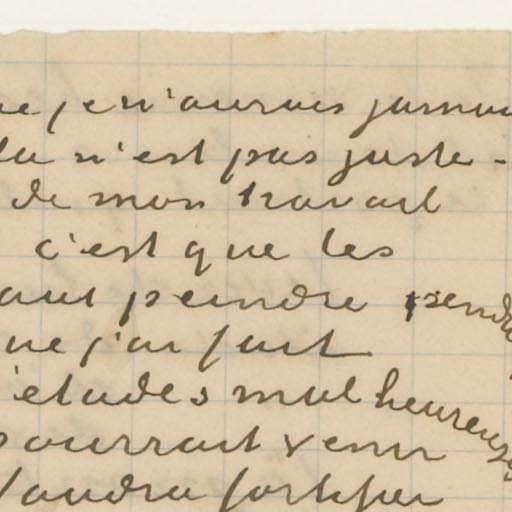 que je n'aurais jamais
la n'est pas juste -
de mon travail
c'est que les
aut peindre pend
que j'ai fait
'études malheureuses
pourrait venir
faudra fortifier